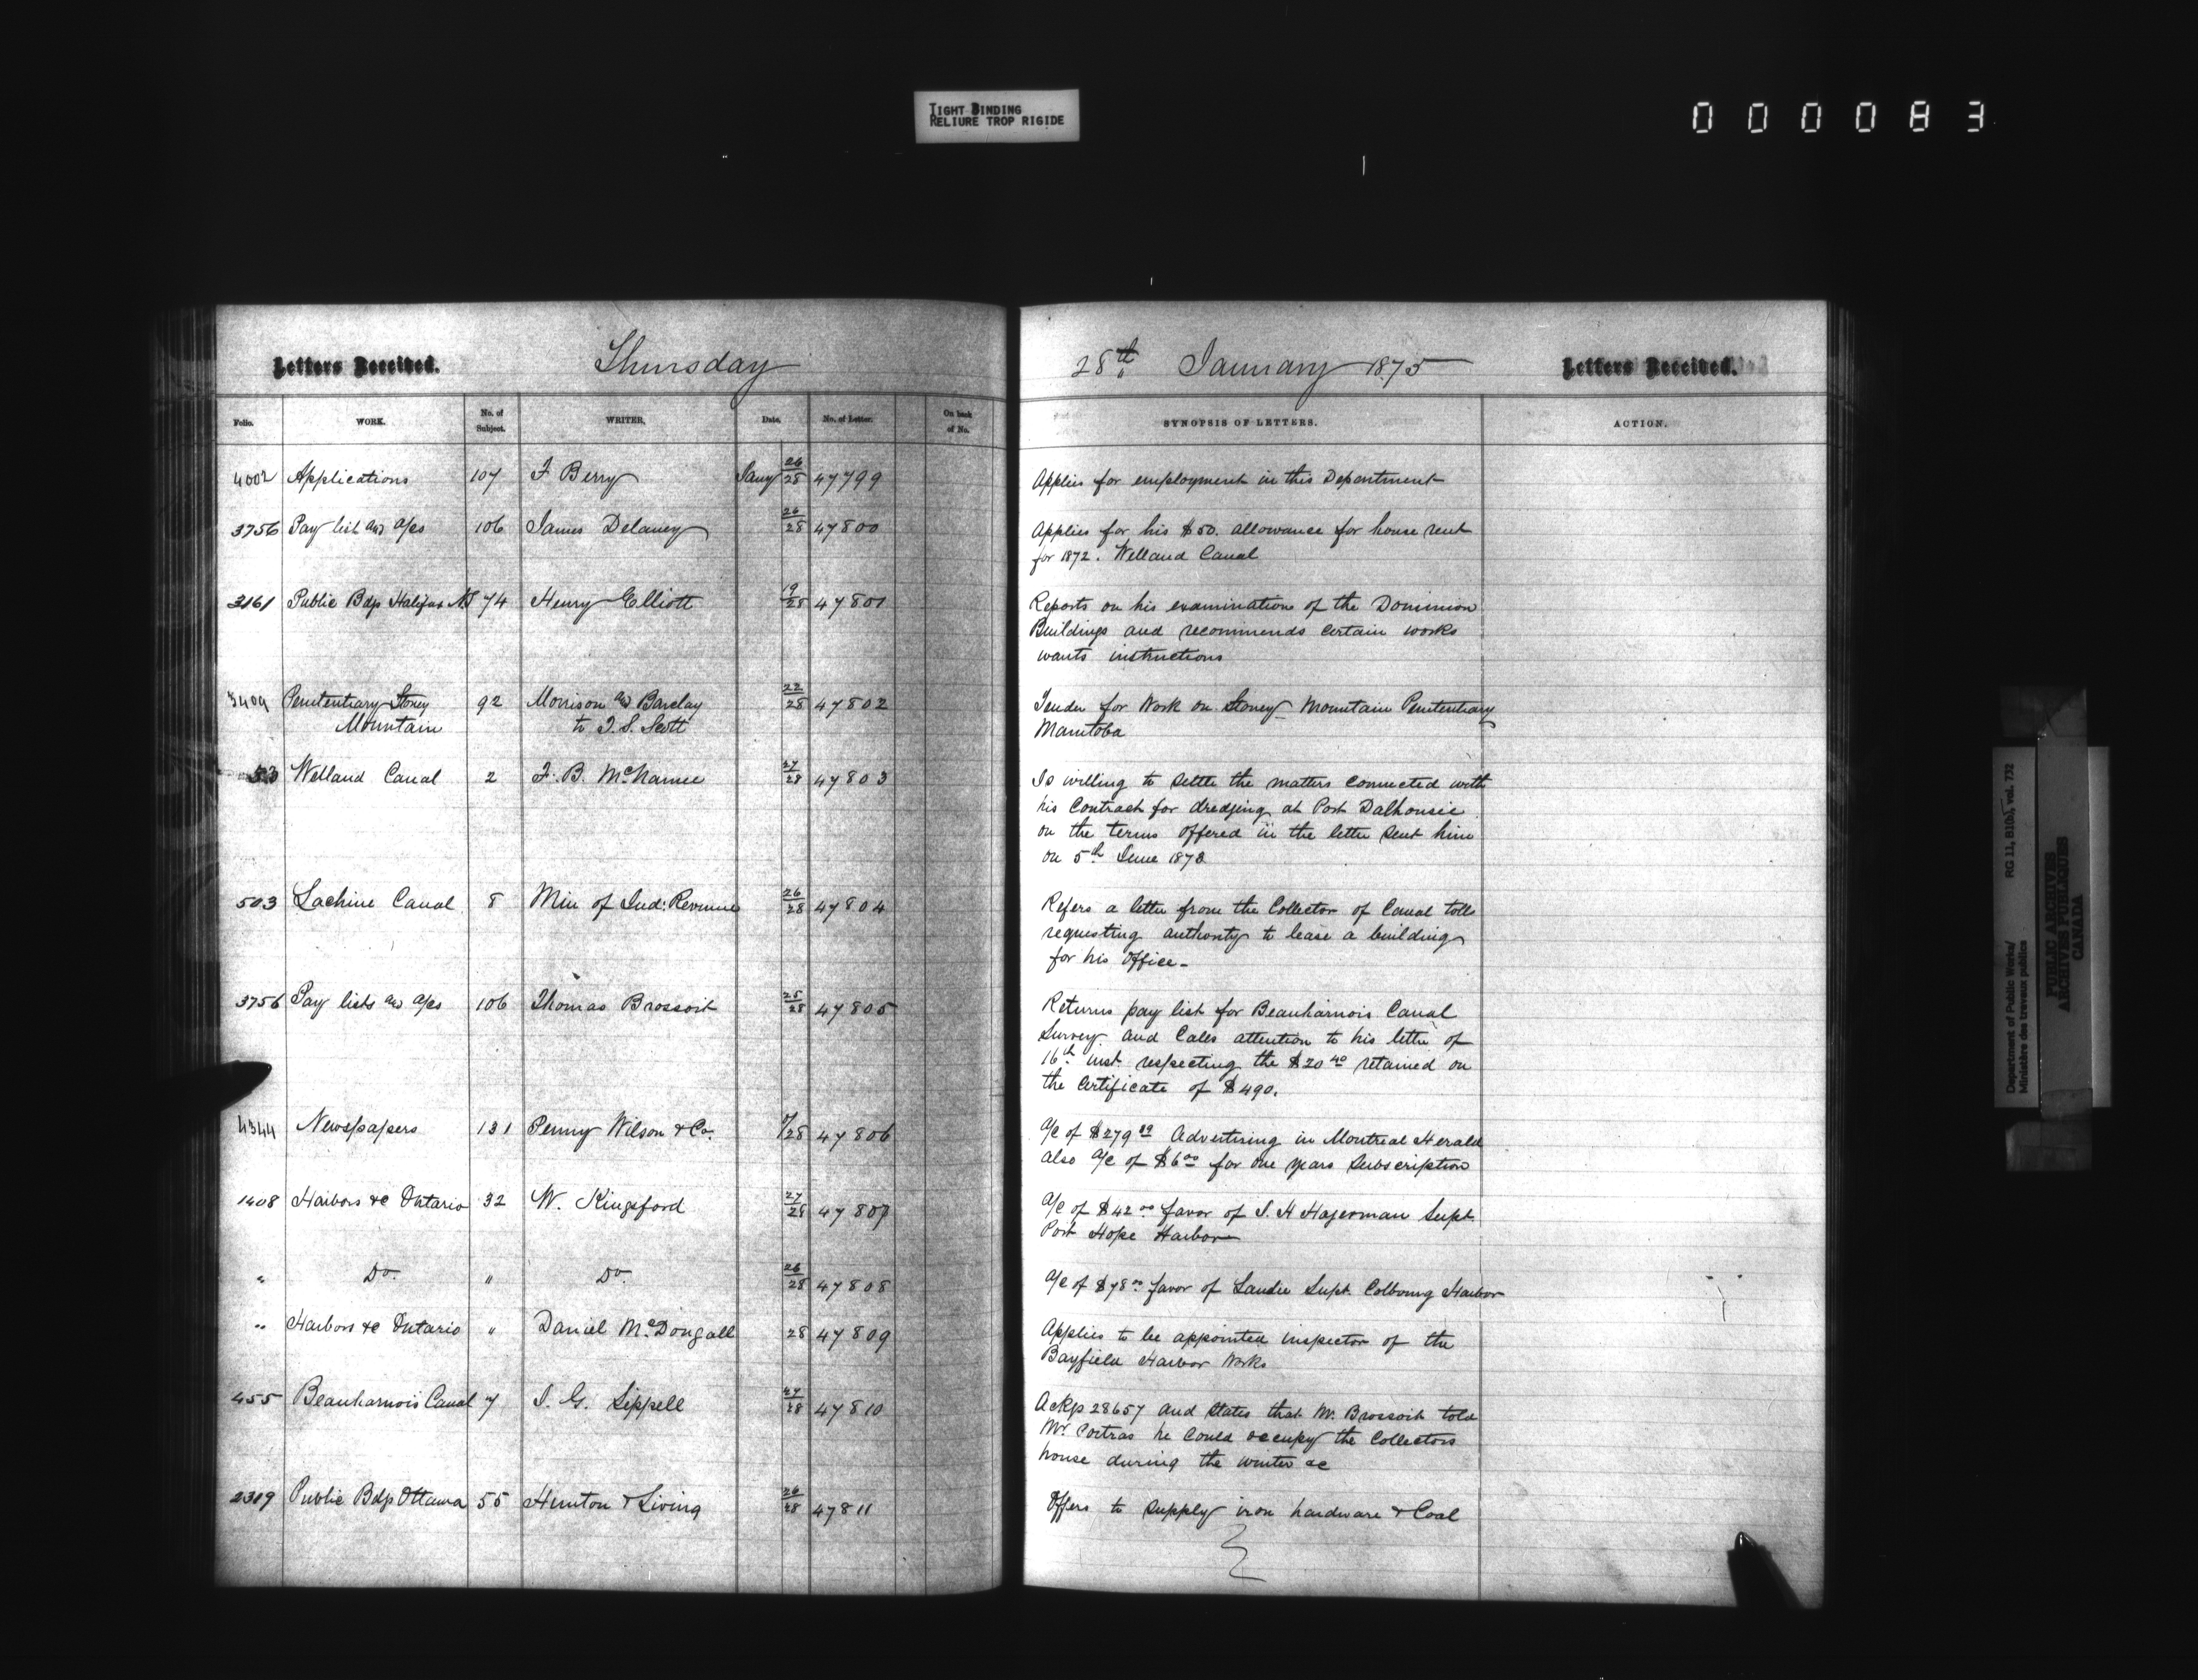 TIGHT BINDING
RELIURE TROP RIGIDE
000083
Letters Received. Thursday
Folio. WORK. No. of Subject. WRITER. Date. No. of Letter. On back of No.
4002 Applications 107 F Berry Jany 26/28 47799
3756 Pay list and a/cs 106 James Delaney 26/28 47800
3161 Public Bdgs Halifax NS 74 Henry Elliott 19/28 47801
3409 Penitentiary Stoney 92 Morrison and Barclay 22/28 47802
Mountain to T. S. Scott
53 Welland Canal 2 F. B. McNamee 27/28 47803
503 Lachine Canal 8 Min of Ind: Revenue 26/28 47804
3756 Pay lists and a/cs 106 Thomas Brossoit 25/28 47805
4344 Newspapers 131 Penny Wilson & Co. /28 47806
1408 Harbors &c Ontario 32 W. Kingsford 27/28 47807
" Do. " Do. 26/28 47808
" Harbors &c Ontario " Daniel McDougall 28 47809
455 Beauharnois Canal 7 J. G. Sippell 27/28 47810
2319 Public Bdgs Ottawa 55 Hunton & Living 26/28 47811
28th January 1875 Letters Received.
SYNOPSIS OF LETTERS. ACTION.
Applies for employment in this Department
Applies for his $50. allowance for house rent
for 1872. Welland Canal
Reports on his examination of the Dominion
Buildings and recommends certain works
wants instructions
Tender for Work on Stoney Mountain Penitentiary
Manitoba
Is willing to settle the matters connected with
his Contract for dredging at Port Dalhousie
on the terms offered in the letter sent him
on 5th June 1873
Refers a letter from the Collector of Canal tolls
requesting authority to lease a building
for his Office-
Returns pay list for Beauharnois Canal
Survey and Calls attention to his letter of
16th inst respecting the $20 40 retained on
the Certificate of $490.
a/c of $279 Advertising in Montreal Herald
also a/c of $6 00 for one years Subscription
a/c of $42 00 favor of J. H Hagerman Supt
Port Hope Harbor
a/c of $78 00 favor of Supt Colborng Harbor
Applies to be appointed inspector of the
Bayfield Harbor Works
Ackgs 28657 and States that Mr. Brossoit told
Mr he Could occupy the Collectors
house during the winter &c
Offers to Supply iron hardware & Coal
Department of Public Works/ RG 11, B1(b), vol. 732
Ministère des travaux publics
PUBLIC ARCHIVES
ARCHIVES PUBLIQUES
CANADA